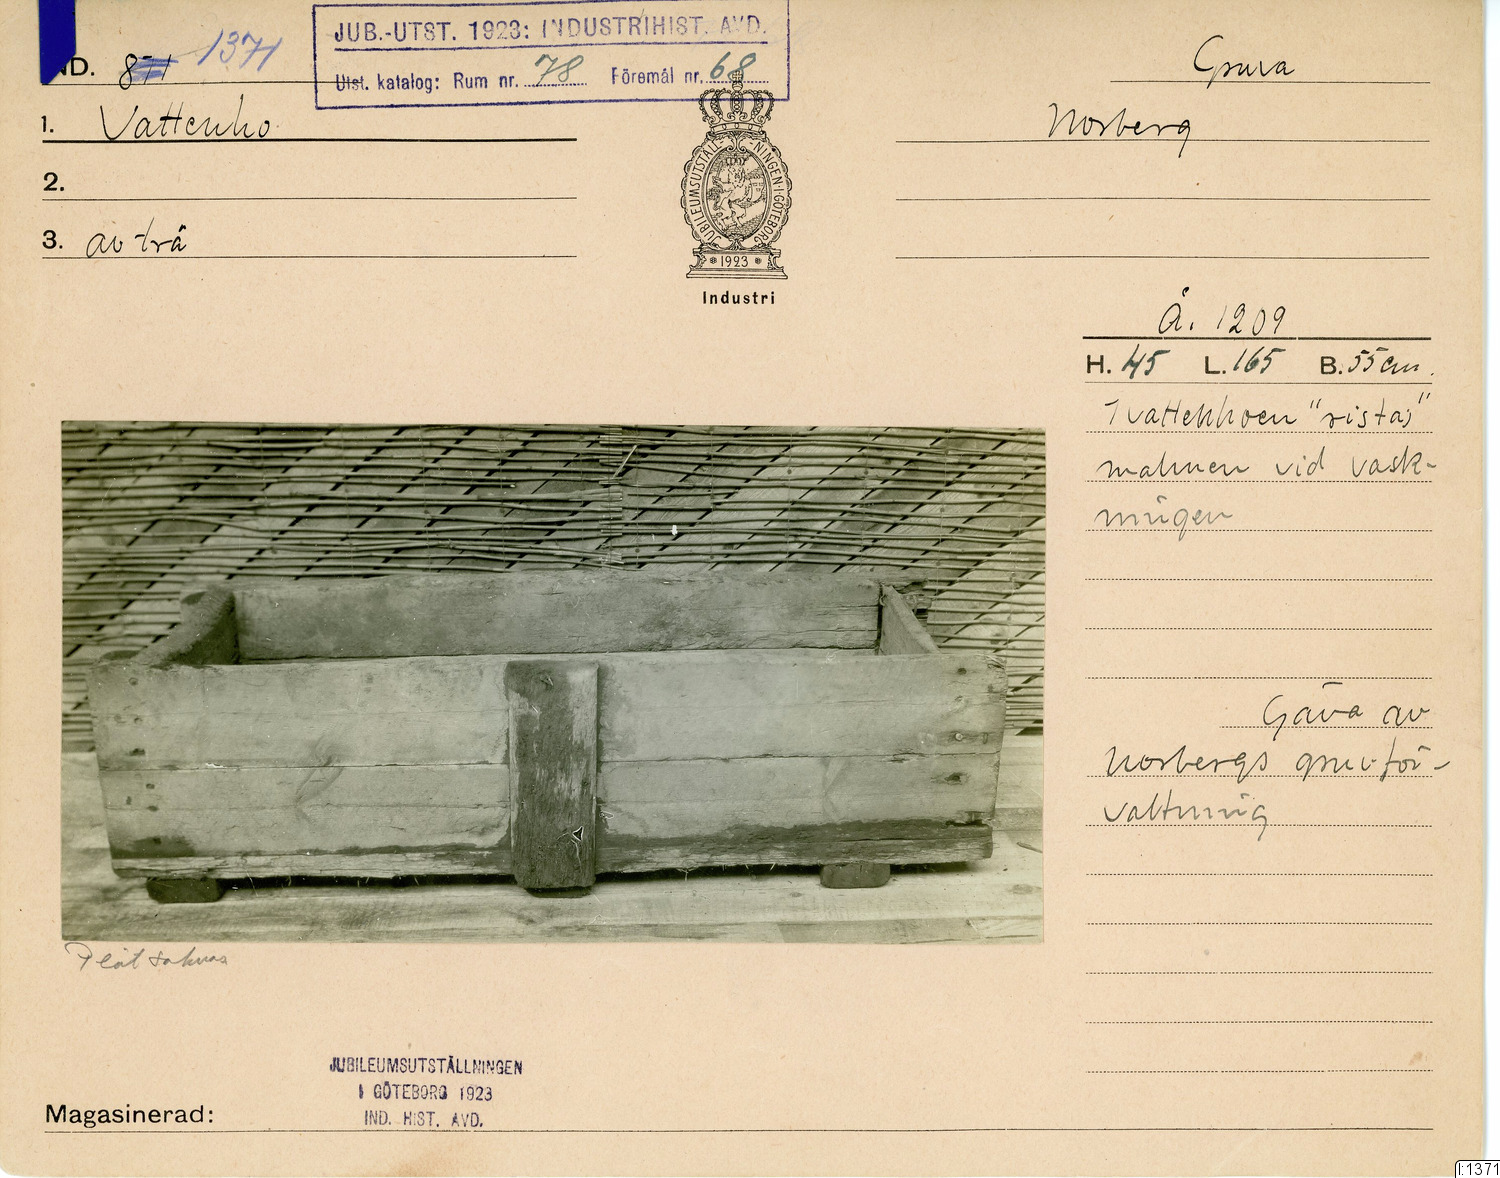 JUB.-UTST. 1923: INDUSTRIHIST. AVD.
Utst. katalog: Rum nr. 78 Föremål nr. 68
IND. 871 1371
1. Vattenho
2.
3. av trä
JUBILEUMSUTSTÄLLNINGEN I GÖTEBORG
1923
Industri
Gruva
Norberg
Å. 1209
H. 45 L. 165 B. 55 cm.
I vattenhoen "ristas"
malmen vid vask-
ningen
Gåva av
Norbergs gruvför-
valtning
Plåt saknas
JUBILEUMSUTSTÄLLNINGEN
I GÖTEBORG 1923
IND. HIST. AVD.
Magasinerad:
I:1371